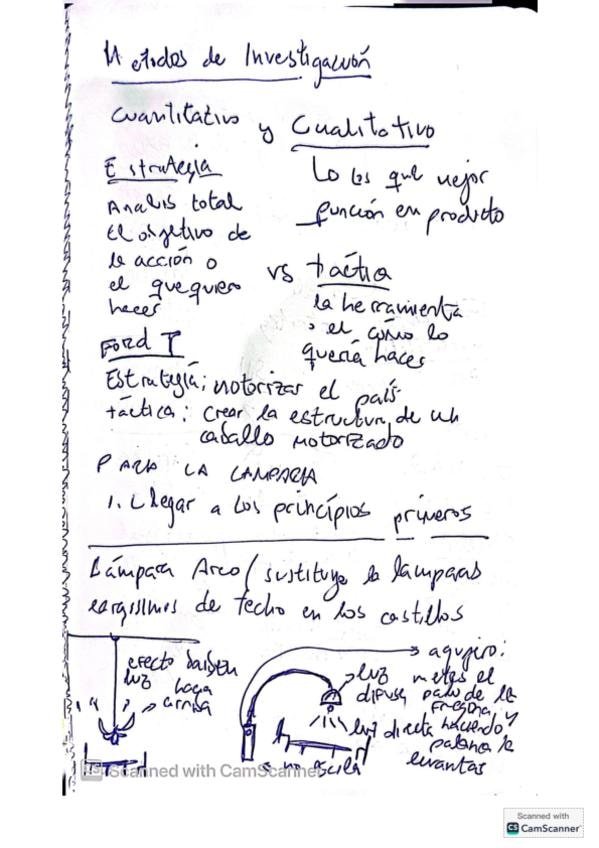 Metodos de Investigación
Cuantitativo y Cualitativo
Estrategia
Lo es que mejor
función en producto
Analis total
el objetivo de
la acción o
el que quiero
hacer
vs táctica
la herramienta
o el cómo lo
quería hacer
Ford T
Estrategia: motorizar el país
táctica: crear la estructura de un
caballo motorizado
PARA LA LAMPARA
1. Llegar a los principios primeros
Lámpara Arco / sustituye la lamparas
larguisimas de techo en los castillos
efecto
luz haga
arriba
→ agujero:
metes el
palo de la
Fregona y
haciendo
palanca la
levantas
luz
difusa
luz directa
no oscila
Scanned with CamScanner
Scanned with
CS CamScanner